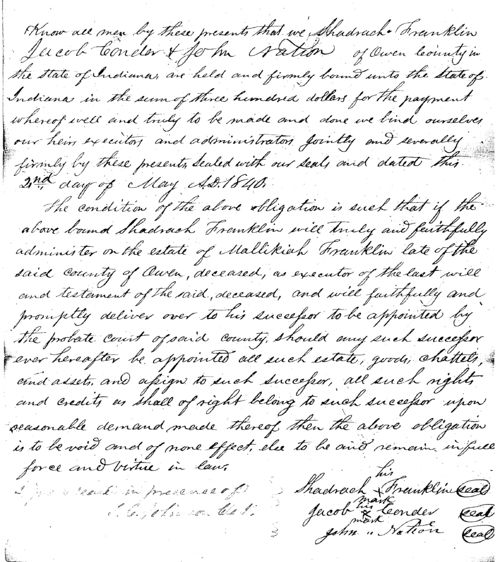 Know all men by these presents that we Shadrach Franklin
Jacob Conder & John Nation of Owen County in
the State of Indiana, are held and firmly bound unto the State of
Indiana in the sum of three hundred dollars for the payment
whereof well and truly to be made and done we bind ourselves
our heirs executors and administrators jointly and severally
firmly by these presents, sealed with our seals and dated this
2nd day of May A.D. 1840.
The condition of the above obligation is such that if the
above bound Shadrach Franklin will truly and faithfully
administer on the estate of Mallikiah Franklin late of the
said county of Owen, deceased, as executor of the last will
and testament of the said, deceased, and will faithfully and
promptly deliver over to his successor to be appointed by
the probate court of said county, should any such successor
ever hereafter be appointed all such estate, goods, chattels,
and assets, and assign to such successor, all such rights
and credits as shall of right belong to such successor upon
reasonable demand made thereof then the above obligation
is to be void and of none effect, else to be and remain in full
force and virtue in law.
in presence of
his
Shadrach x Franklin seal
mark
his
Jacob x Conder seal
mark
John " Nation seal